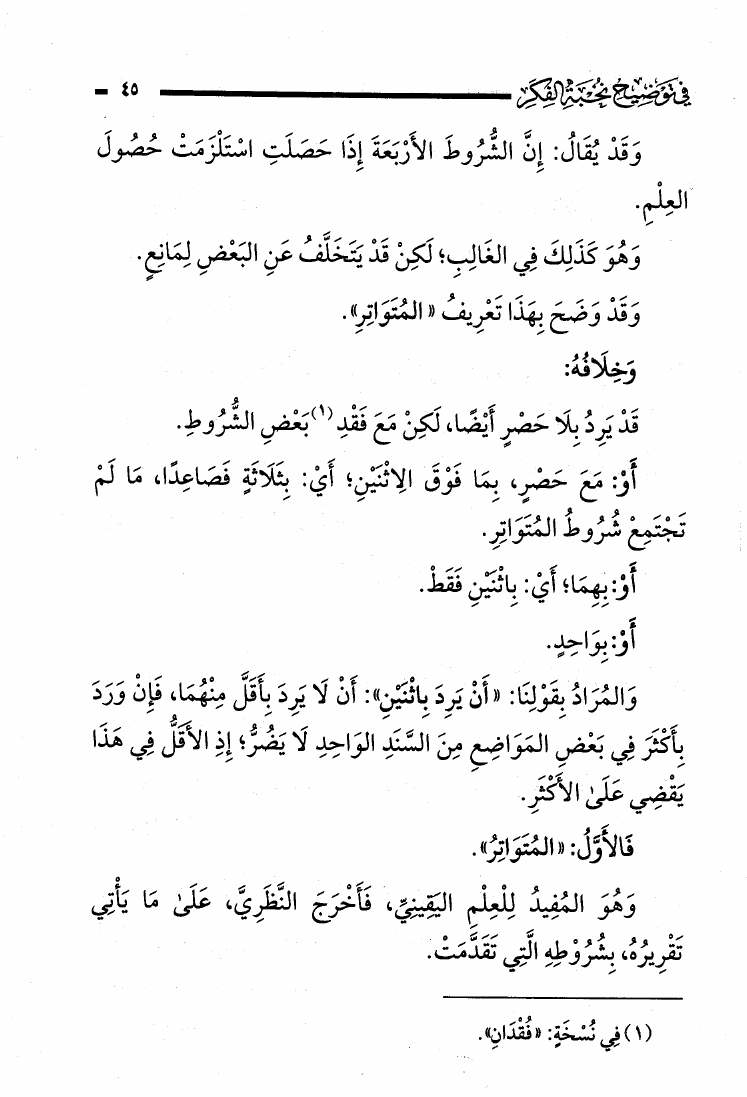 في توضيح نخبة الفكر ٤٥
وَقَدْ يُقَالُ: إِنَّ الشُّرُوطَ الأَرْبَعَةَ إِذَا حَصَلَتِ اسْتَلْزَمَتْ حُصُولَ
العِلْمِ.
وَهُوَ كَذَلِكَ فِي الغَالِبِ؛ لَكِنْ قَدْ يَتَخَلَّفُ عَنِ البَعْضِ لِمَانِعٍ.
وَقَدْ وَضَحَ بِهَذَا تَعْرِيفُ «المُتَوَاتِرِ».
وَخِلَافُهُ:
قَدْ يَرِدُ بِلَا حَصْرٍ أَيْضًا، لَكِنْ مَعَ فَقْدِ (١) بَعْضِ الشُّرُوطِ.
أَوْ: مَعَ حَصْرٍ، بِمَا فَوْقَ الاِثْنَيْنِ؛ أَيْ: بِثَلَاثَةٍ فَصَاعِدًا، مَا لَمْ
تَجْتَمِعْ شُرُوطُ المُتَوَاتِرِ.
أَوْ: بِهِمَا؛ أَيْ: بِاثْنَيْنِ فَقَطْ.
أَوْ: بِوَاحِدٍ.
وَالمُرَادُ بِقَوْلِنَا: «أَنْ يَرِدَ بِاثْنَيْنِ»: أَنْ لَا يَرِدَ بِأَقَلَّ مِنْهُمَا، فَإِنْ وَرَدَ
بِأَكْثَرَ فِي بَعْضِ المَوَاضِعِ مِنَ السَّنَدِ الوَاحِدِ لَا يَضُرُّ؛ إِذِ الأَقَلُّ فِي هَذَا
يَقْضِي عَلَىٰ الأَكْثَرِ.
فَالأَوَّلُ: «المُتَوَاتِرُ».
وَهُوَ المُفِيدُ لِلْعِلْمِ اليَقِينِيِّ، فَأَخْرَجَ النَّظَرِيَّ، عَلَىٰ مَا يَأْتِي
تَقْرِيرُهُ، بِشُرُوْطِهِ الَّتِي تَقَدَّمَتْ.
(١) فِي نُسْخَةٍ: «فُقْدَانِ».